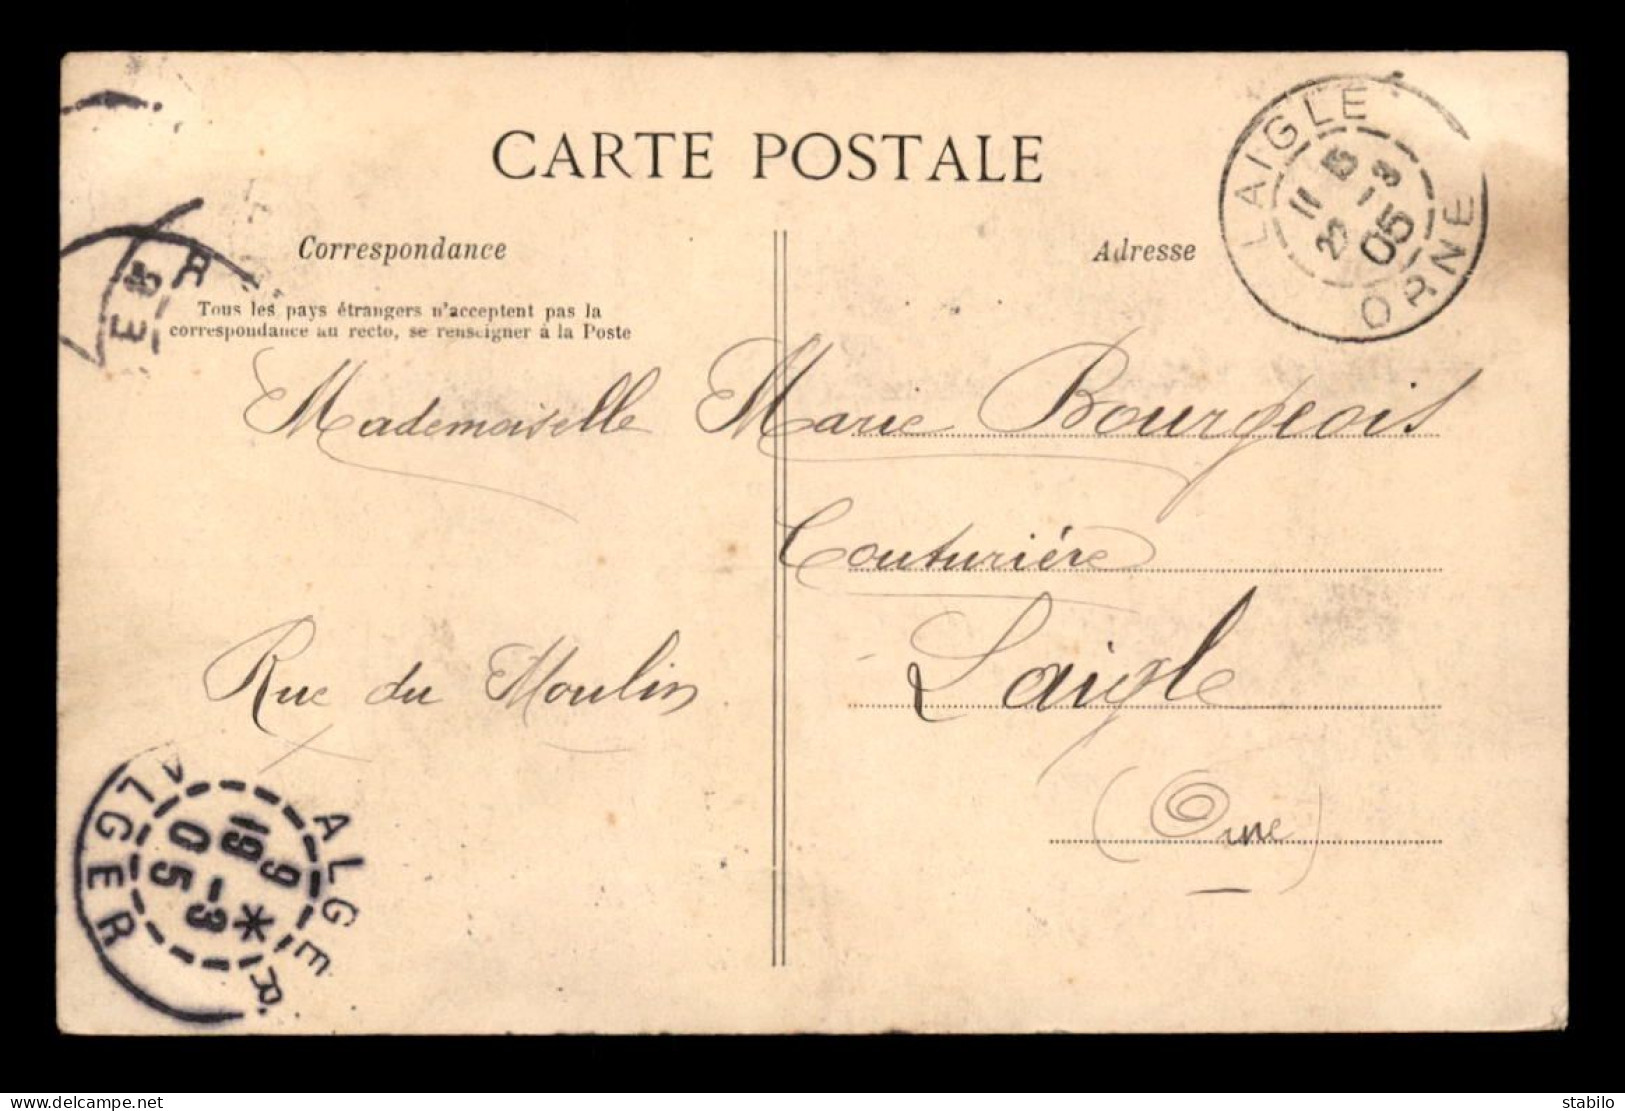 CARTE POSTALE
Correspondance
Adresse
Tous les pays étrangers n'acceptent pas la
correspondance au recto, se renseigner à la Poste
LAIGLE
ORNE
05
Mademoiselle Marie Bourgeois
Couturière
Rue du Moulin
Laigle
(Orne)
ALGER
ALGER
9 *
19 -3
05
www.delcampe.net
stabilo